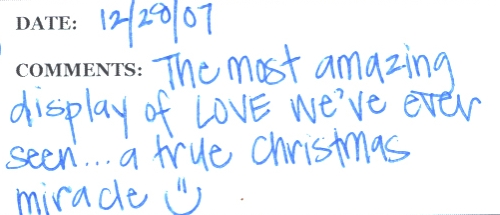 DATE: 12/29/07
COMMENTS: The most amazing
display of LOVE we've ever
seen... a true christmas
miracle